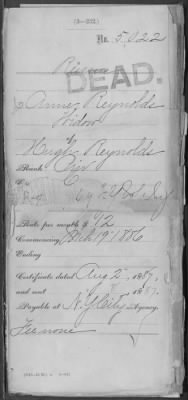 (3—202.)
No. 5,022
DEAD.
Anne Reynolds
Widow
of
Hugh Reynolds
Rank
Co.
Reg't
Rate per month $12
Commencing Mch 19, 1886
Ending
Certificate dated Aug 2, 1887,
and sent 1887.
Payable at N.Y. City Agency.
Fee none